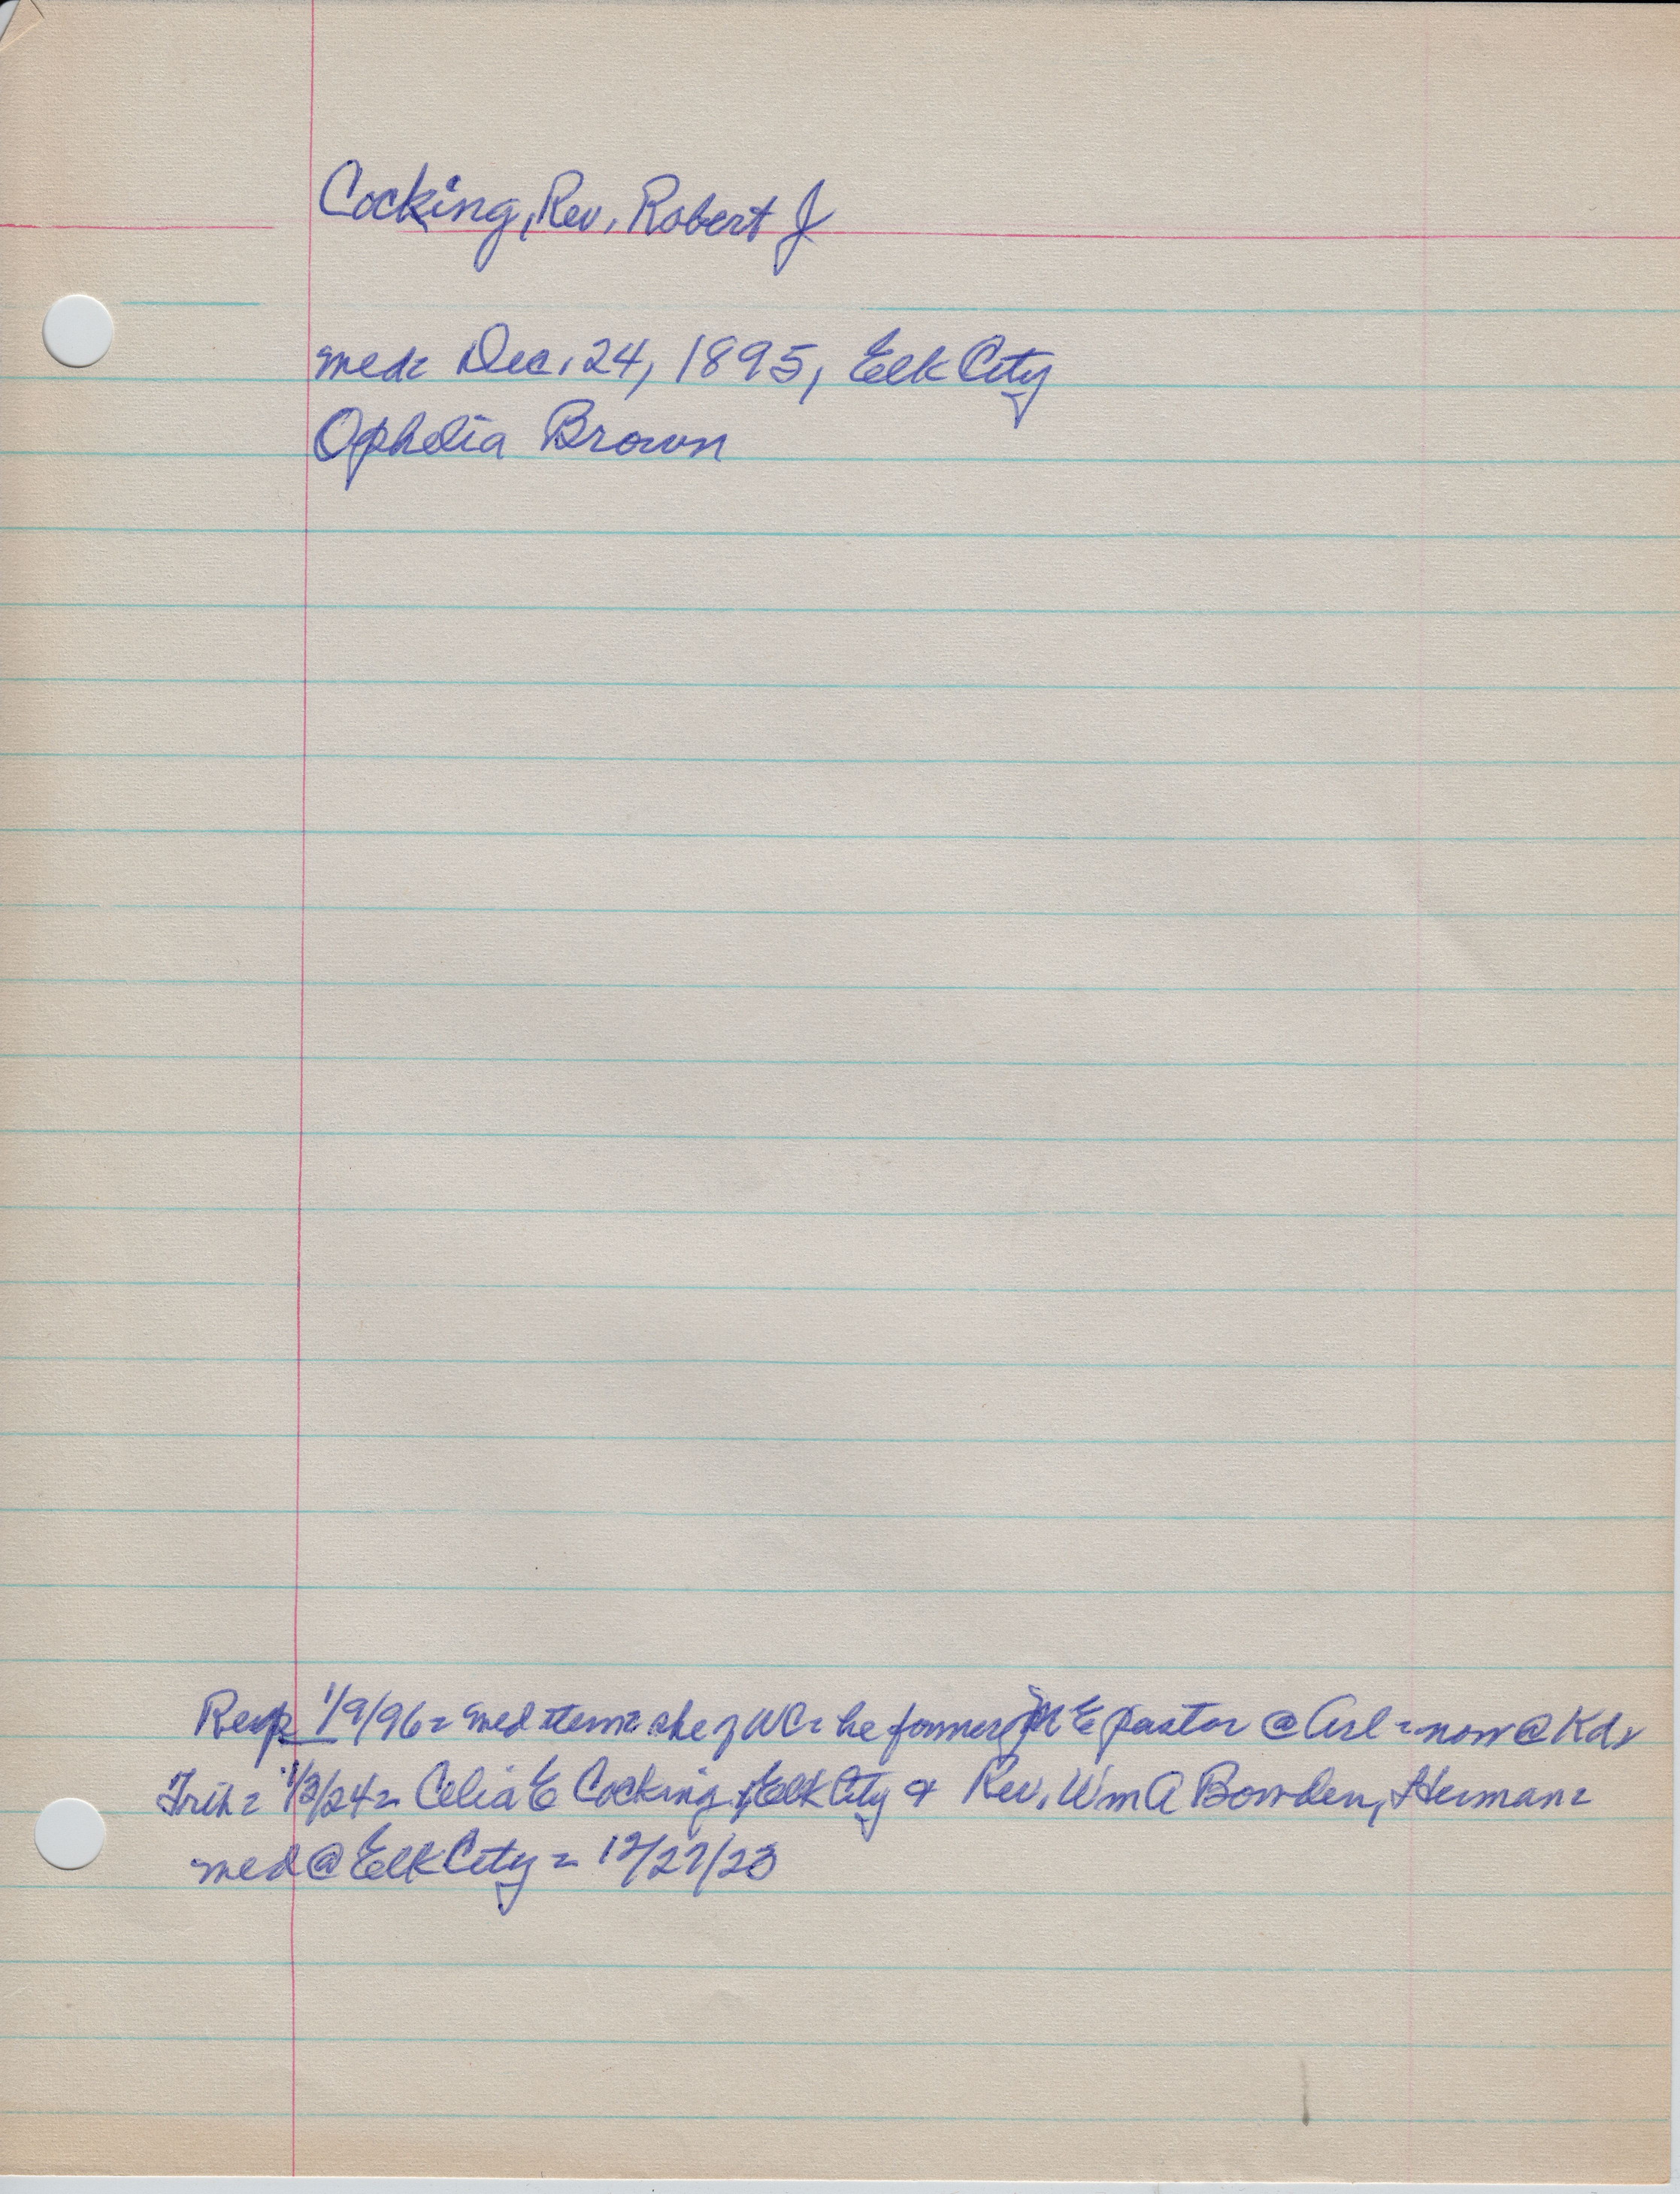 Cocking, Rev. Robert J
med= Dec. 24, 1895, Elk City
Ophelia Brown
Rep= 1/9/96= med item= she of WC= he former M E pastor @ Arl= now @ Kd=
Trib= 1/3/24= Celia E Cocking of Elk City & Rev. Wm A Bowden, Herman=
med @ Elk City= 12/27/23